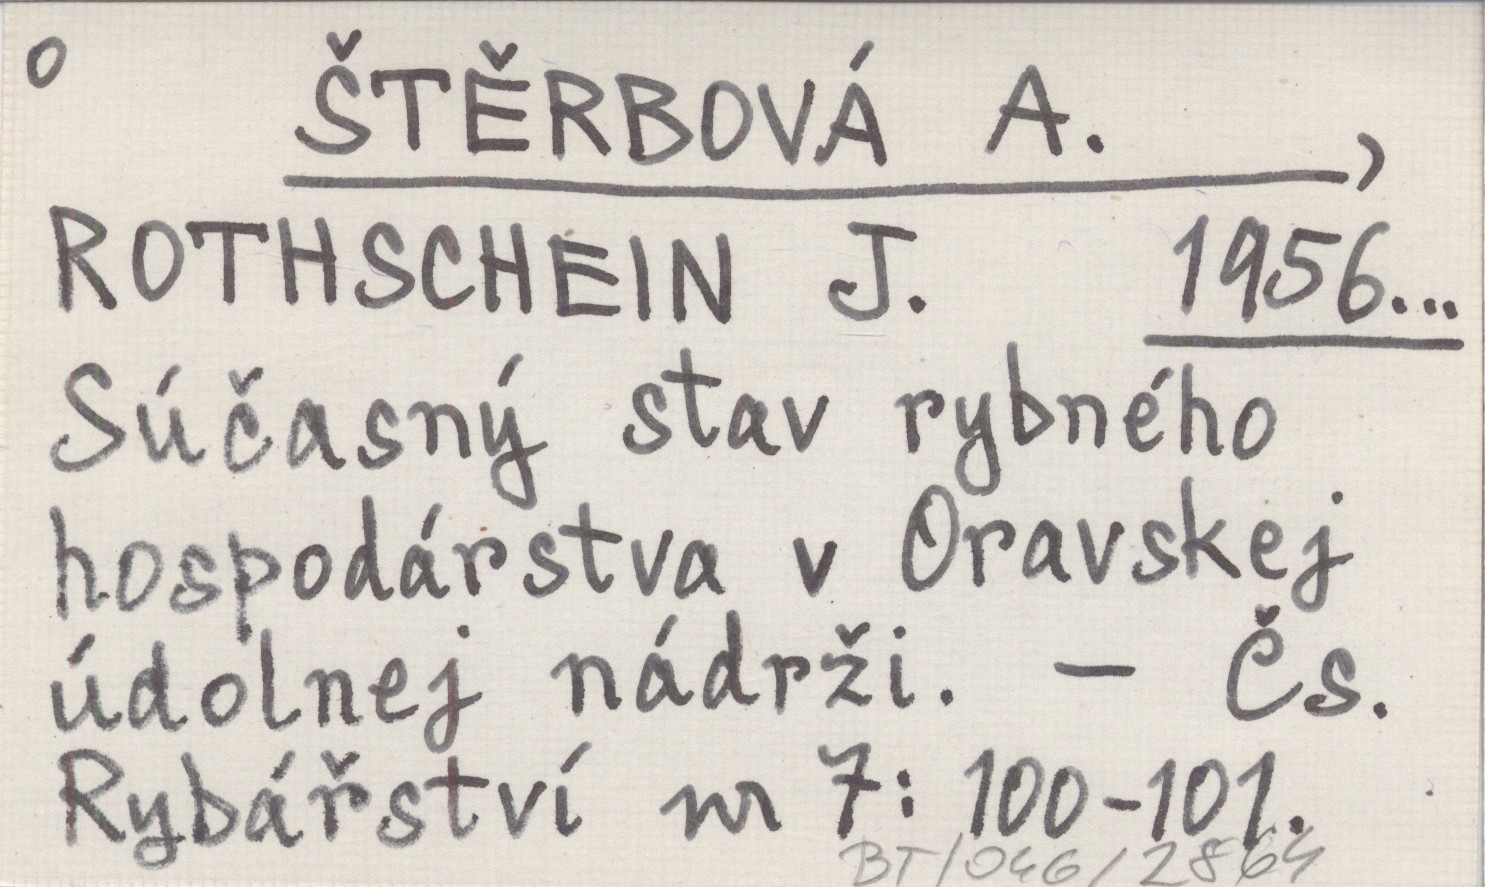 o
ŠTĚRBOVÁ A.,
ROTHSCHEIN J. 1956...
Súčasný stav rybného
hospodárstva v Oravskej
údolnej nádrži. – Čs.
Rybářství nr 7: 100-101.
BT/046/2864